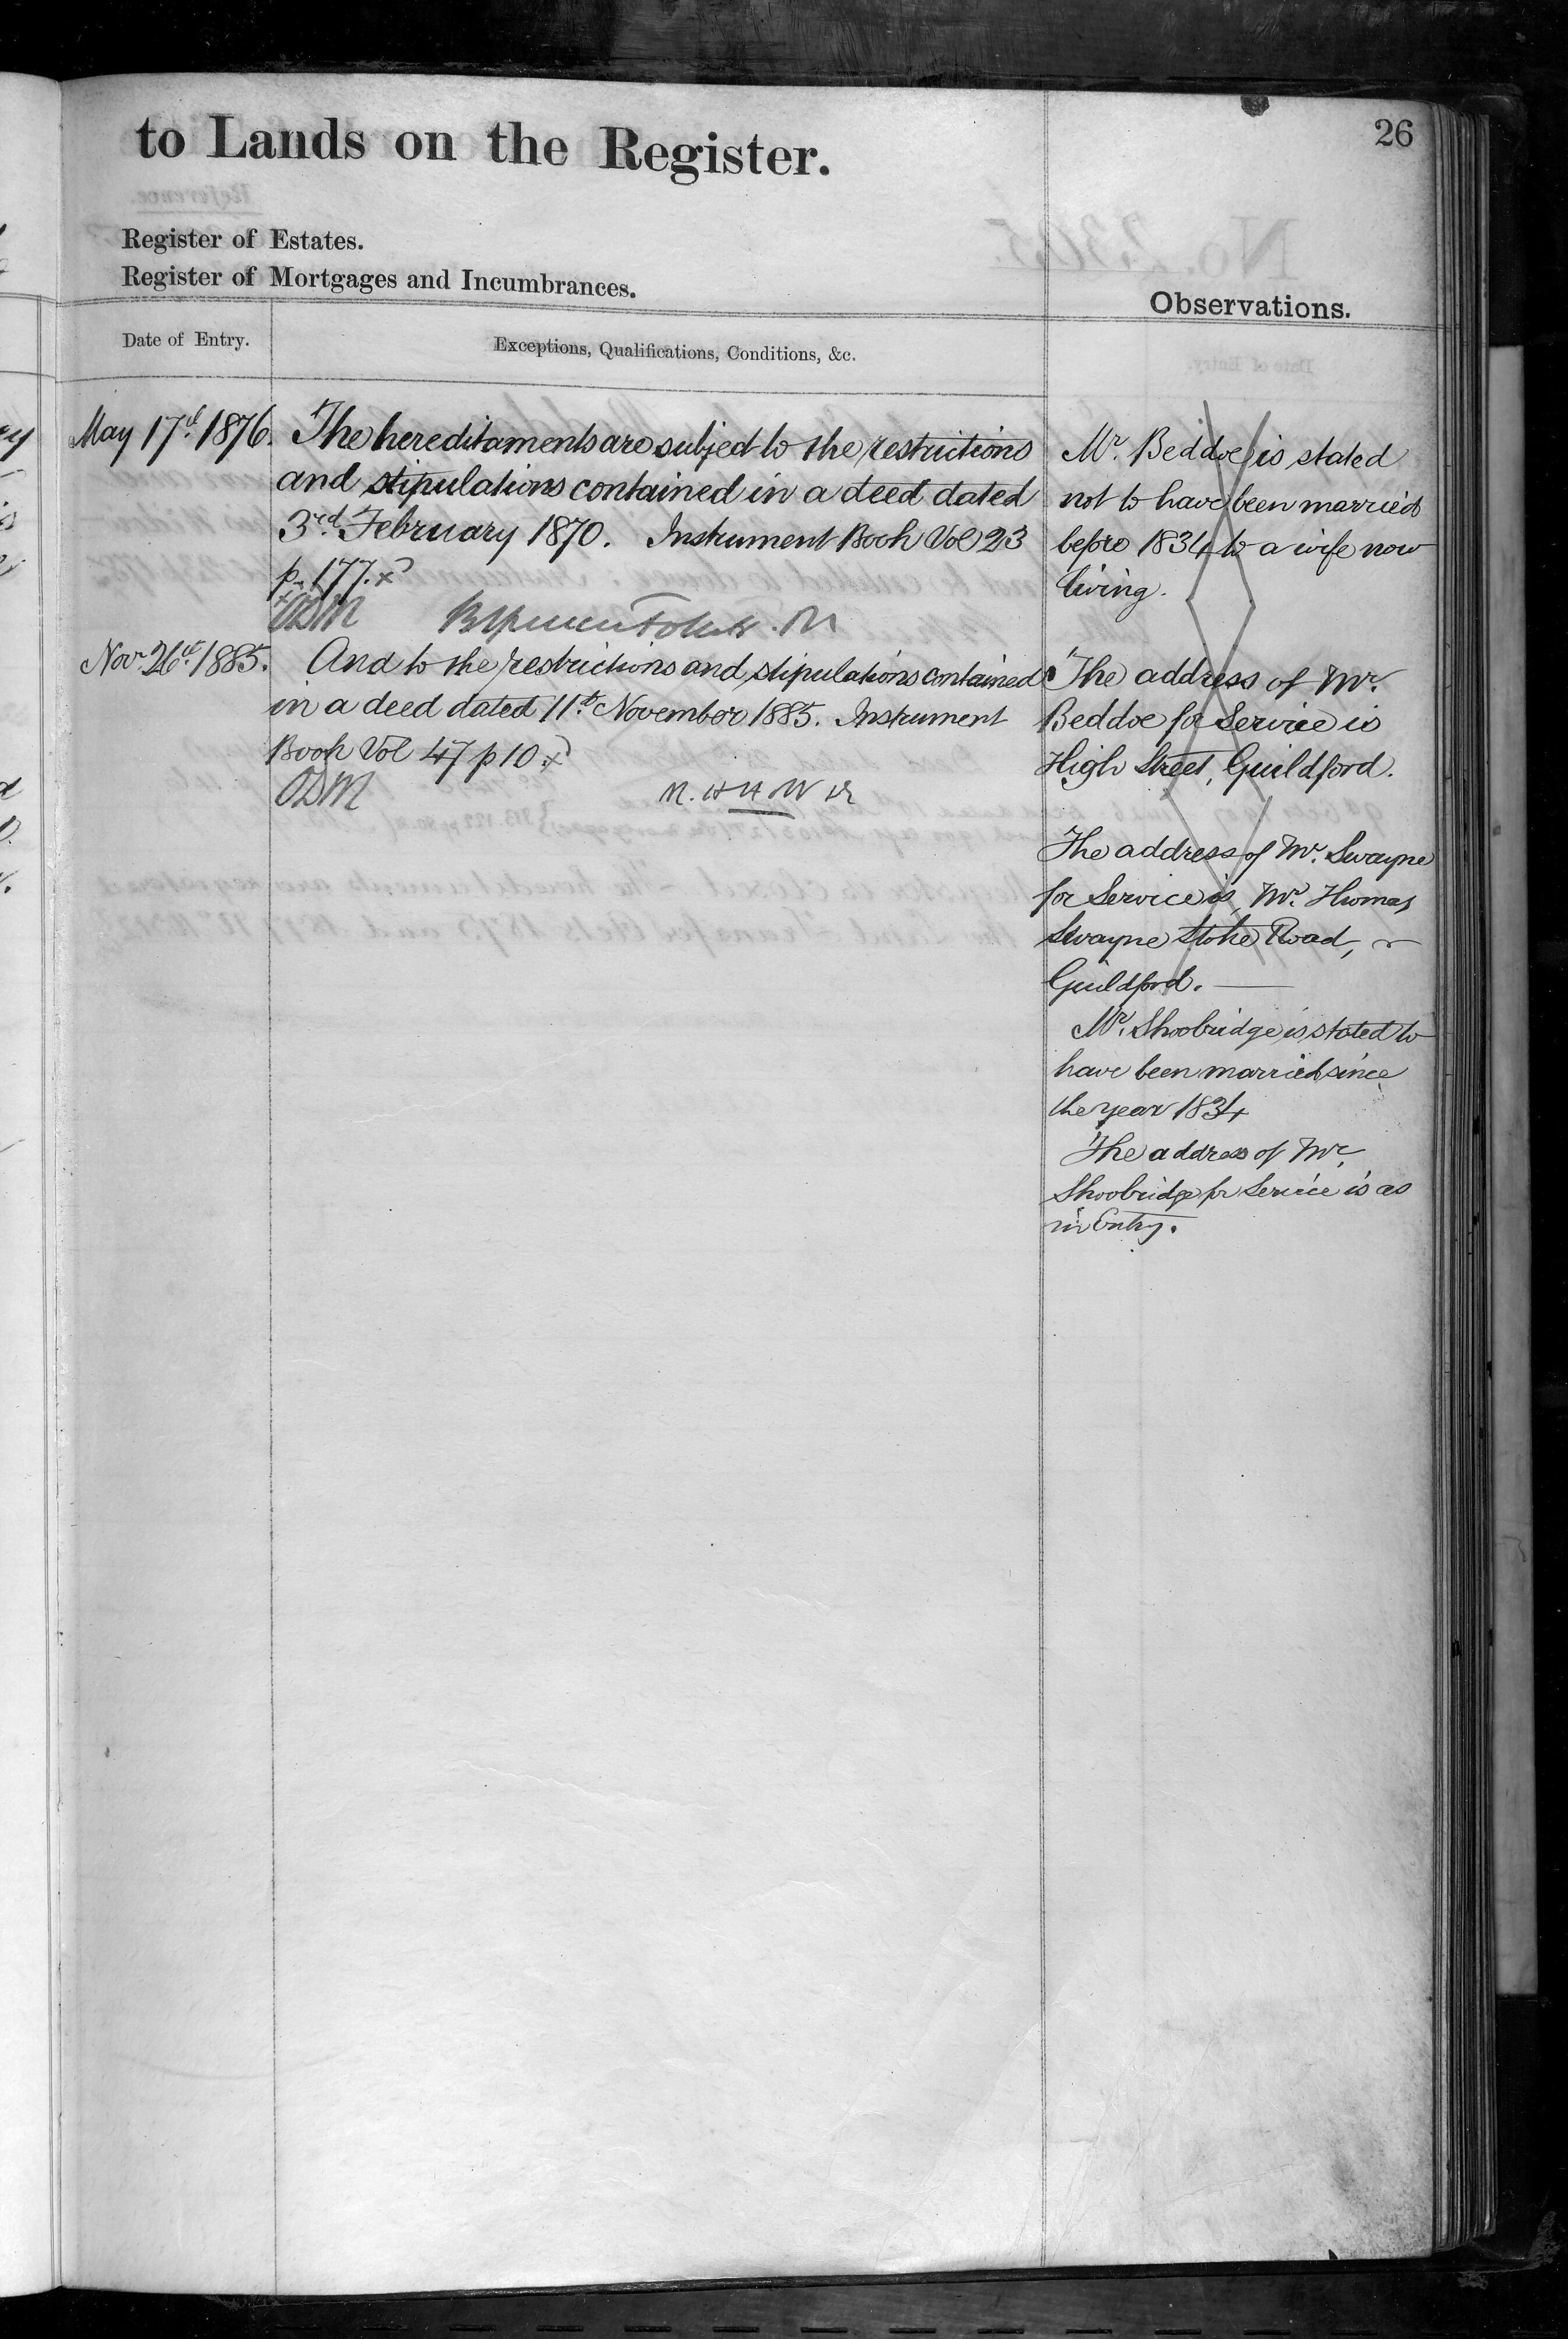 to Lands on the Register.
26
Register of Estates.
Register of Mortgages and Incumbrances.
Observations.
Date of Entry.
Exceptions, Qualifications, Conditions, &c.
May 17th 1876.
The hereditaments are subject to the restrictions
and stipulations contained in a deed dated
3rd February 1870. Instrument Book Vol 23
p. 177. x
ODM
Nov. 26th 1885.
And to the restrictions and stipulations contained
in a deed dated 11th November 1885. Instrument
Book Vol 47 p 10 x
ODM
Mr. Beddoe is stated
not to have been married
before 1834 to a wife now
living.
The address of Mr.
Beddoe for Service is
High Street, Guildford.
The address of Mr. Swayne
for Service is, Mr. Thomas
Swayne Stoke Road,
Guildford.
Mr. Shoobridge is stated to
have been married since
the year 1834
The address of Mr.
Shoobridge for Service is as
in Entry.